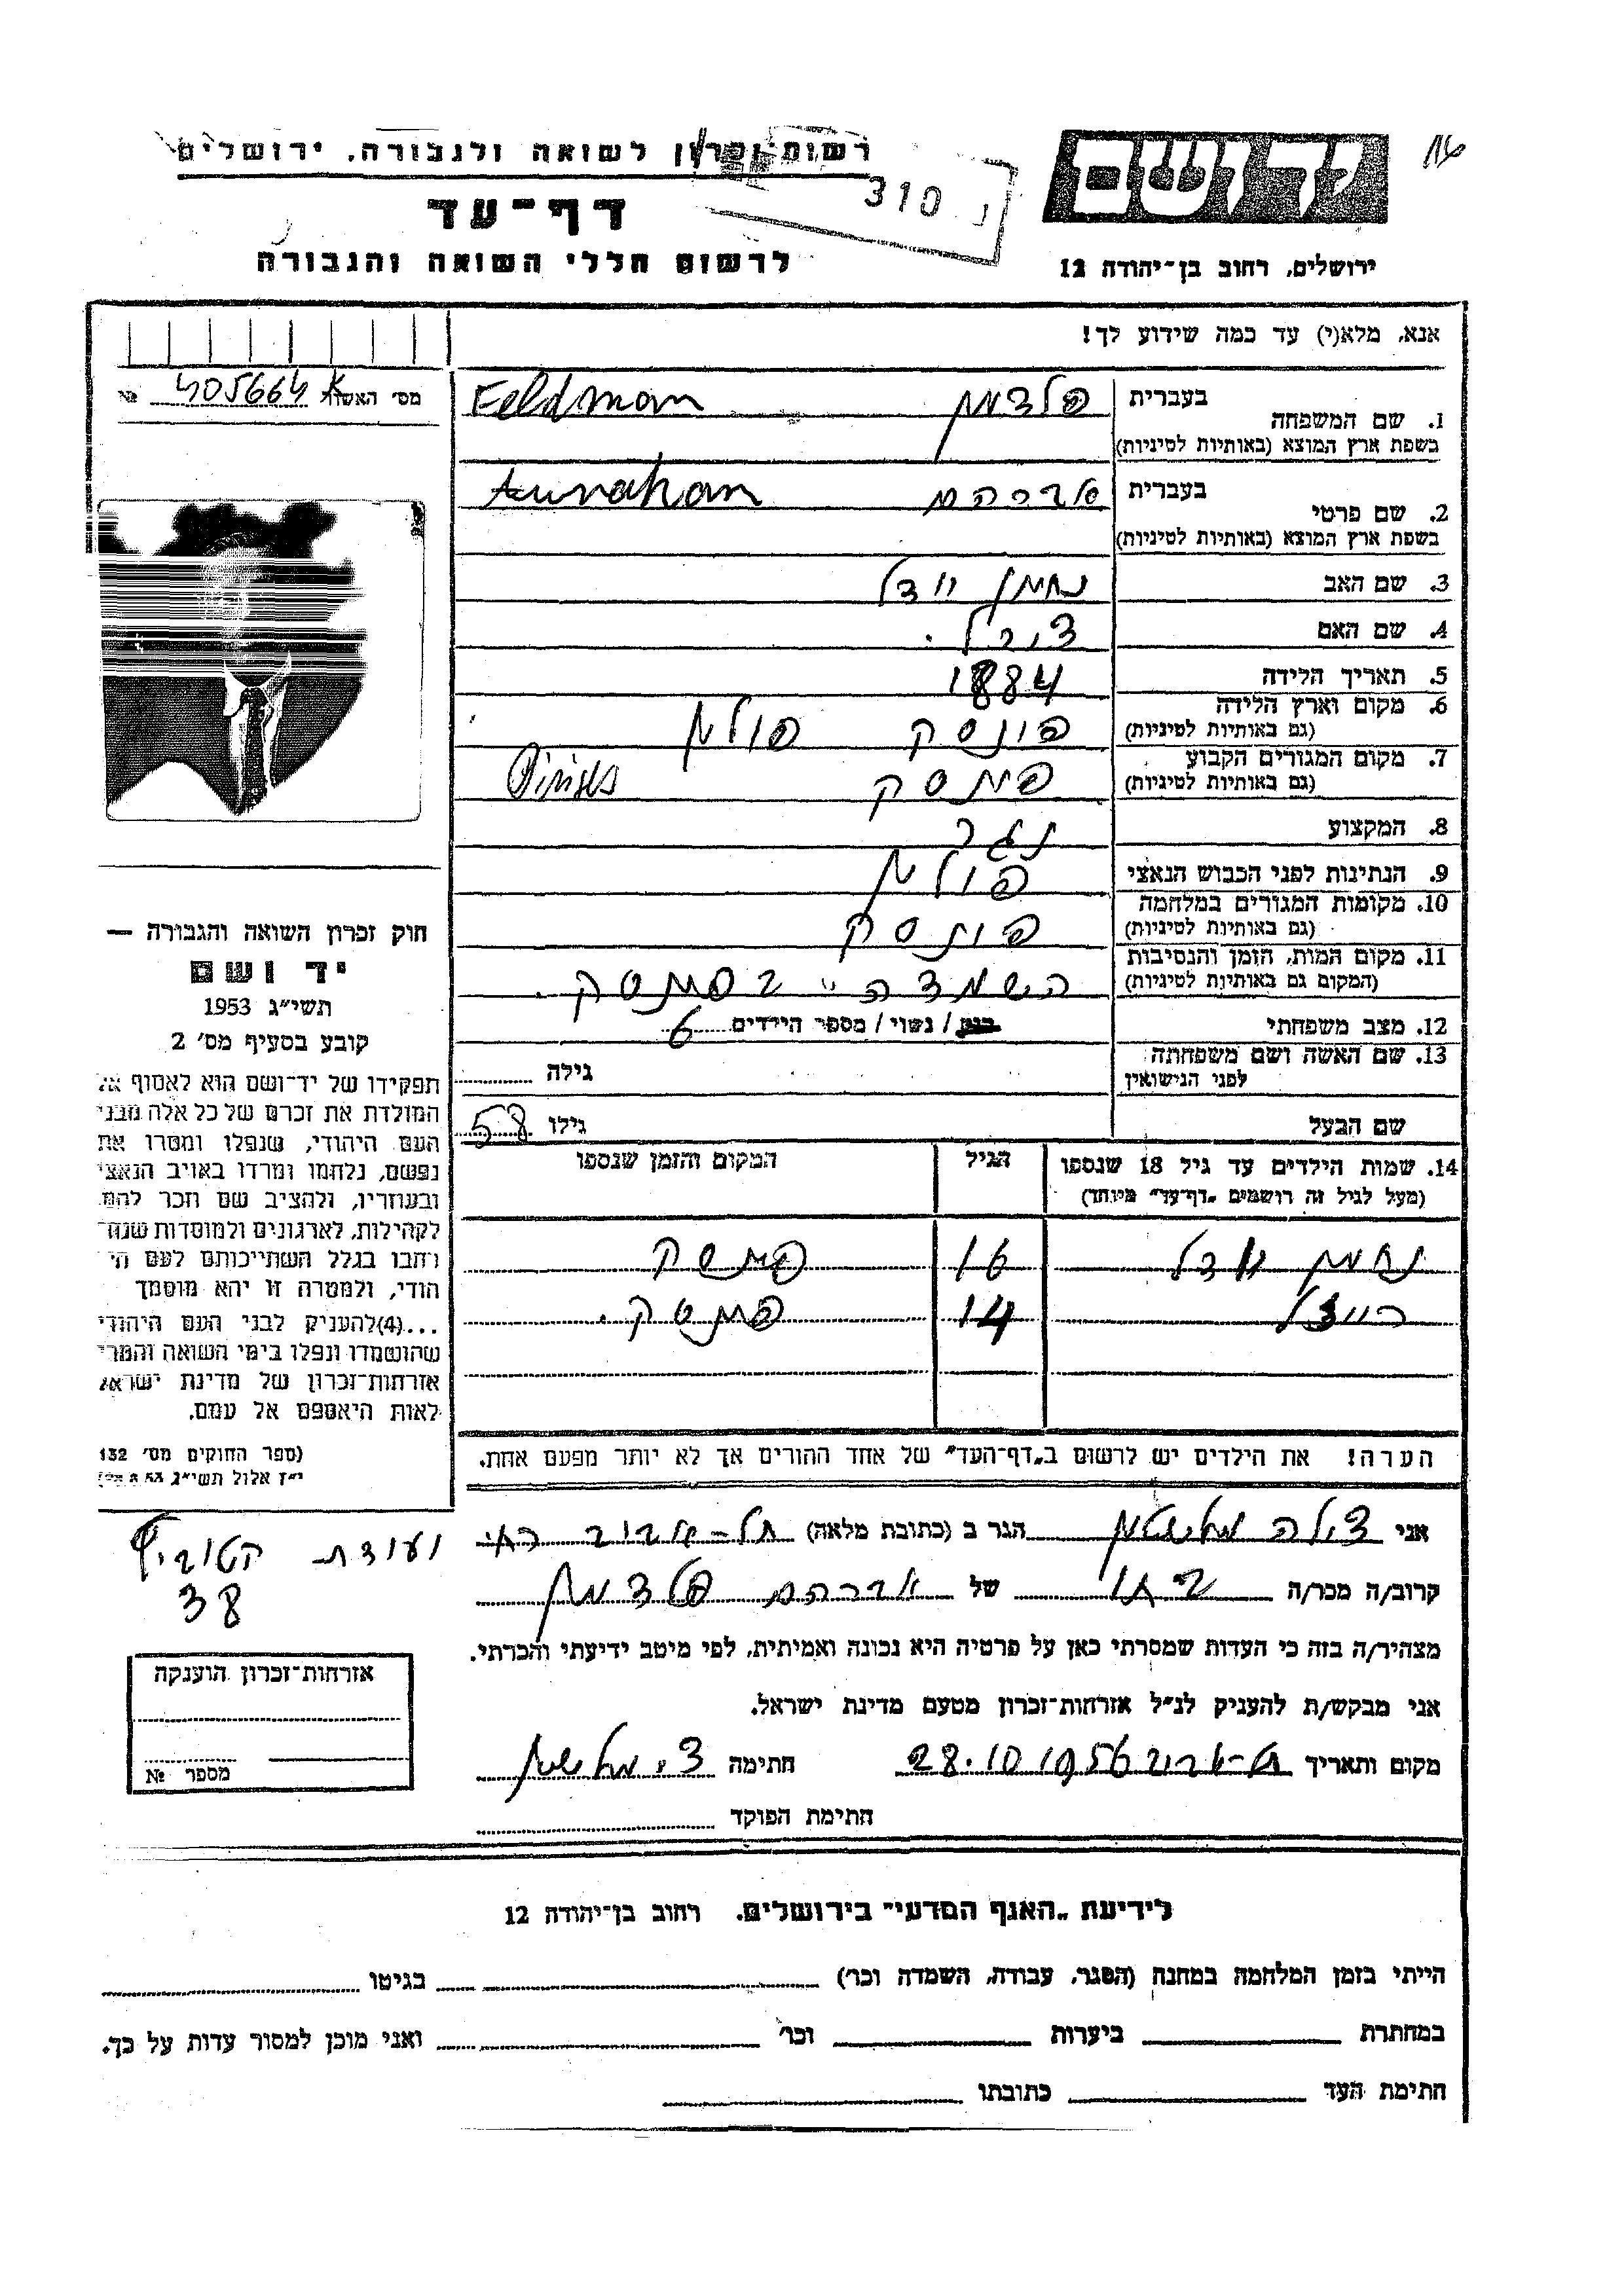 רשות זכרון לשואה ולגבורה, ירושלים
310
דף-עד
לרשום חללי השואה והגבורה
ירושלים, רחוב בן-יהודה 12
אנא, מלא(י) עד כמה שידוע לך!
מס׳ האשה K 405664 №
1. שם המשפחה
בעברית
פלדמן Feldman
בשפת ארץ המוצא (באותיות לטיניות)
2. שם פרטי
בעברית
אברהם
בשפת ארץ המוצא (באותיות לטיניות)
3. שם האב נחמן יודל
4. שם האם
5. תאריך הלידה 1884
6. מקום וארץ הלידה פינסק פולין
(גם באותיות לטיניות)
7. מקום המגורים הקבוע פינסק
(גם באותיות לטיניות)
8. המקצוע נגר
9. הנתינות לפני הכבוש הנאצי פולין
10. מקומות המגורים במלחמה פינסק
(גם באותיות לטיניות)
11. מקום המות, הזמן והנסיבות
(המקום גם באותיות לטיניות)
12. מצב משפחתי רווק / נשוי / מספר הילדים 6
13. שם האשה ושם משפחתה
לפני הנישואין גילה
שם הבעל גילו 58
14. שמות הילדים עד גיל 18 שנספו הגיל המקום והזמן שנספו
(מעל לגיל זה רושמים „דף-עד״ מיוחד)
נחמן יודל 16 פינסק
רייזל 14 פינסק.
הערה! את הילדים יש לרשום ב„דף-העד״ של אחד ההורים אך לא יותר מפעם אחת.
חוק זכרון השואה והגבורה —
יד ושם
תשי״ג 1953
קובע בסעיף מס׳ 2
תפקידו של יד-ושם הוא לאסוף אל
המולדת את זכרם של כל אלה מבני
העם היהודי, שנפלו ומסרו את
נפשם, נלחמו ומרדו באויב הנאצי
ובעוזריו, ולהציב שם וזכר להם,
לקהילות, לארגונים ולמוסדות שנח-
רבו בגלל השתייכותם לעם הי-
הודי, ולמטרה זו יהא מוסמך
...(4)להעניק לבני העם היהודי
שהושמדו ונפלו בימי השואה והמרי
אזרחות-זכרון של מדינת ישראל
לאות היאספם אל עמם.
(ספר החוקים מס׳ 132
י״ז אלול תשי״ג
38
אני צילה הגר ב (כתובת מלאה) תל-אביב
קרוב/ה מכר/ה בתו של אברהם פלדמן
מצהיר/ה בזה כי העדות שמסרתי כאן על פרטיה היא נכונה ואמיתית, לפי מיטב ידיעתי והכרתי.
אני מבקש/ת להעניק לנ״ל אזרחות-זכרון מטעם מדינת ישראל.
מקום ותאריך ת-אביב 28.10 1956 חתימה
חתימת הפוקד
אזרחות-זכרון הוענקה
מספר №
לידיעת „האגף המדעי״ בירושלים, רחוב בן-יהודה 12
הייתי בזמן המלחמה במחנה (הסגר, עבודה, השמדה וכו׳) בגיטו
במחתרת ביערות וכו׳ ואני מוכן למסור עדות על כך.
חתימת העד כתובתו